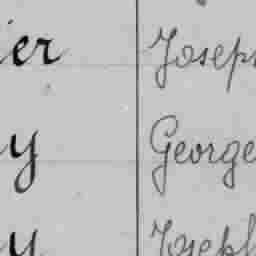 er Joseph
y George
y Joseph